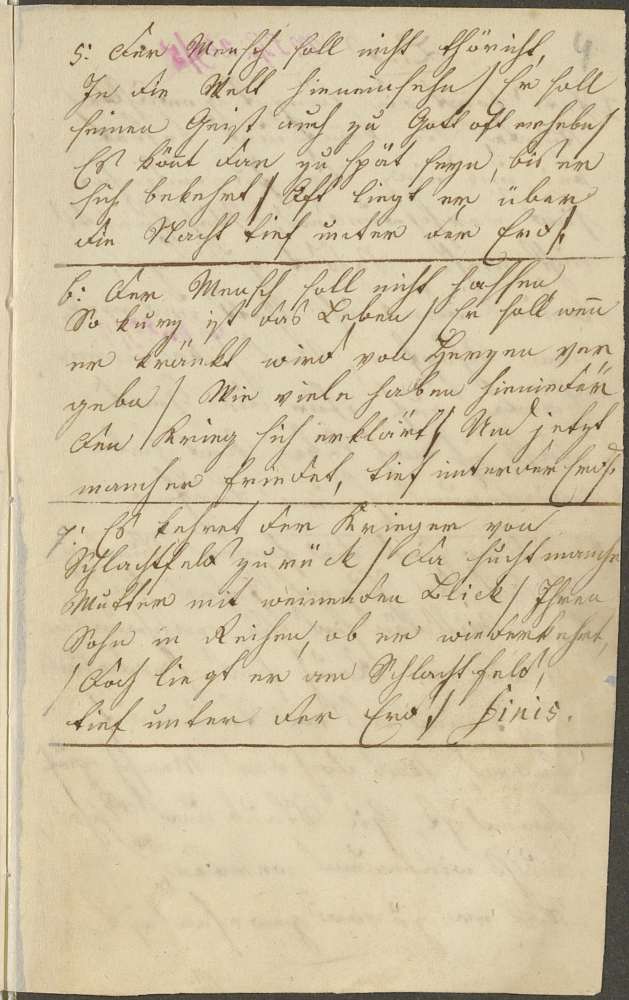 5: Der Mensch soll nicht thöricht
In die Welt hineinsehn / Er soll
seinen Geist auch zu Gott oft erheben /
Es könt dan zu spät seyn, bis er
sich bekehrt / Oft liegt er über
die Nacht tief unter der Erd /.
6: Der Mensch soll nicht hassen
So kurz ist das Leben / Er soll wen
er kränkt wird von Herzen ver
geben / Wie viele haben hienieden
den Krieg sich erklärt / Und jetzt
mancher friedet, tief unter der Erd /.
7: Es kehret der Krieger von
Schlachtfeld zurück / Da sucht manche
Mutter mit weinenden Blick / Ihren
Sohn in Reihen, ob er wiederkehrt,
/ Doch liegt er am Schlachtfeld,
tief unter der Erd / Finis.
4